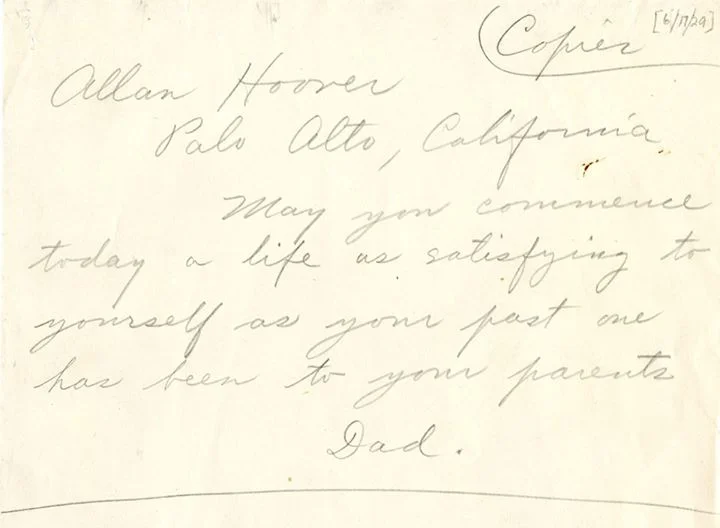 [6/17/29]
Copies
Allan Hoover
Palo Alto, California
May you commence
today a life as satisfying to
yourself as your past one
has been to your parents
Dad.